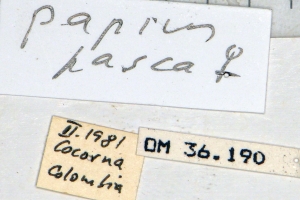 papius
pasca ♀
II.1981
Cocorna
Colombia
DM 36.190